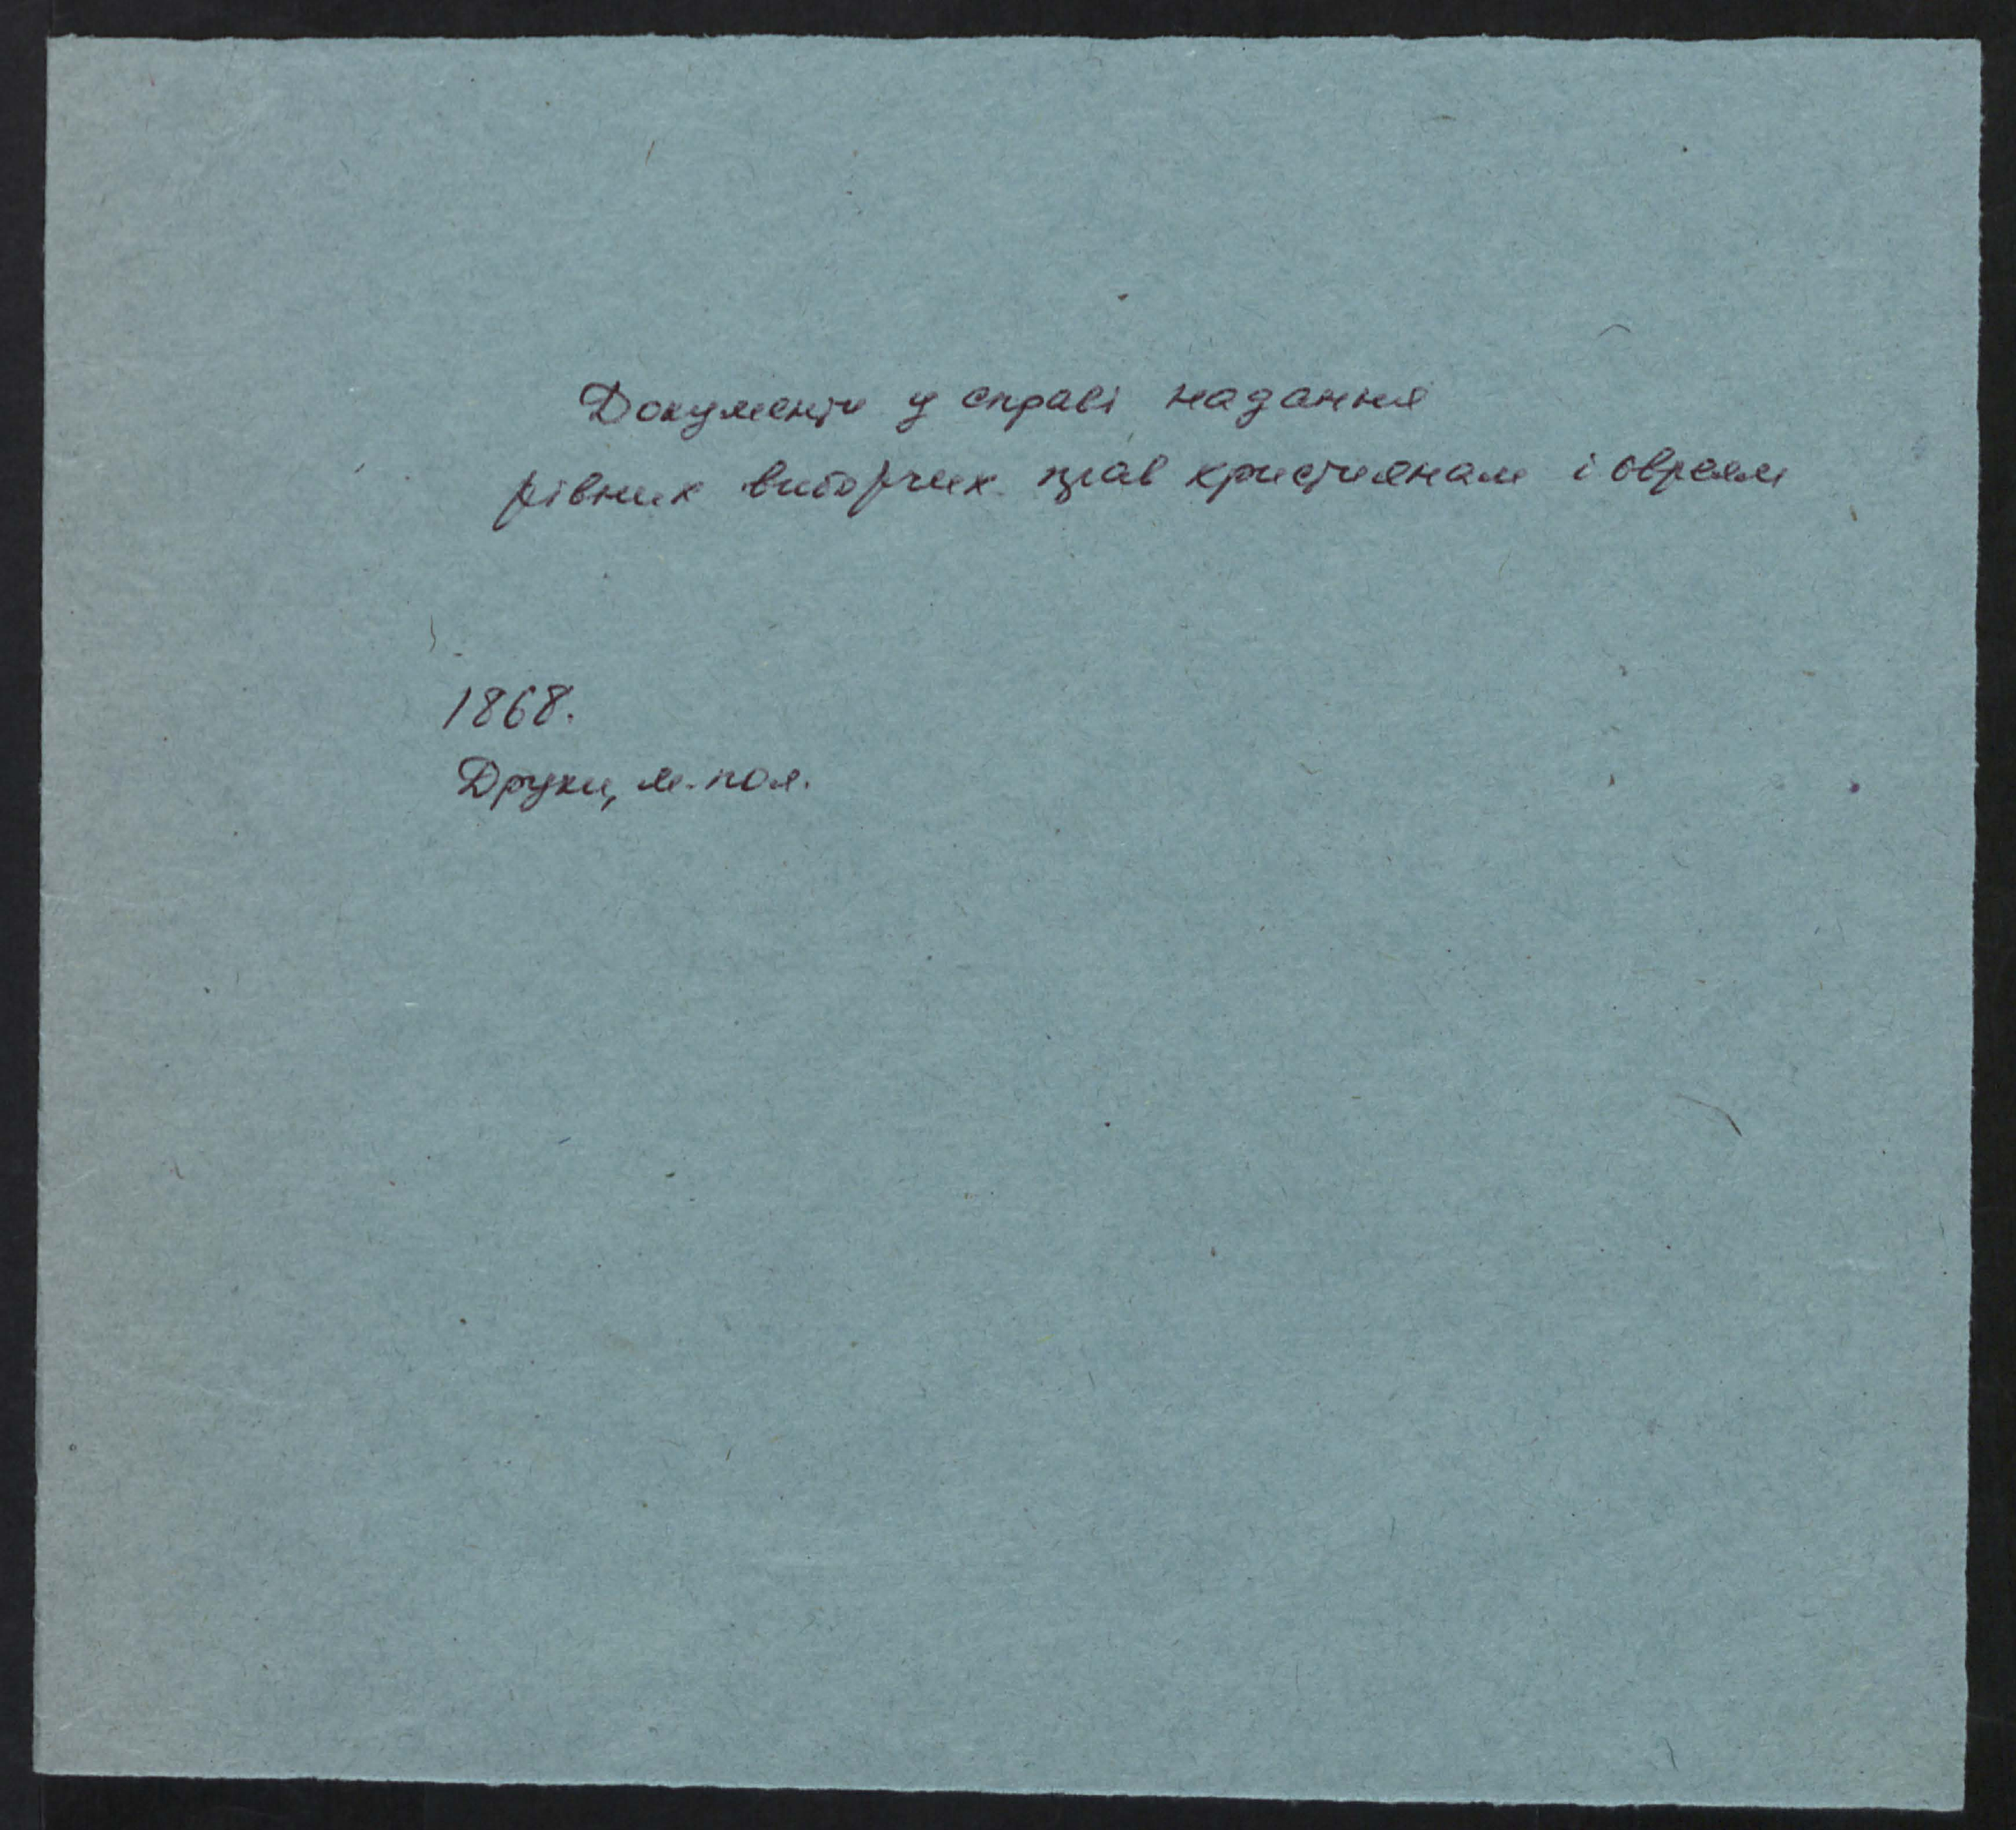 Документи у справі надання
рівних виборчих прав християнам і євреям
1868.
Друки, м. пол.